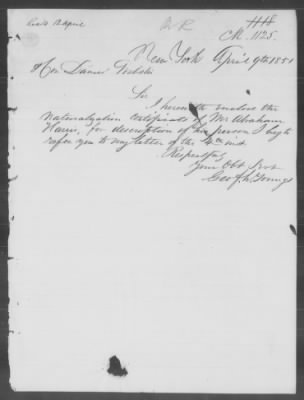 M. 1125.
New York April 9th 1851
Hon Daniel Webster
Sir
I herewith enclose the
Naturalization certificate of Mr Abraham
for description of his person I beg to
refer you to my letter of the 4th inst.
Respectfully
Your Obt Svt
Geo